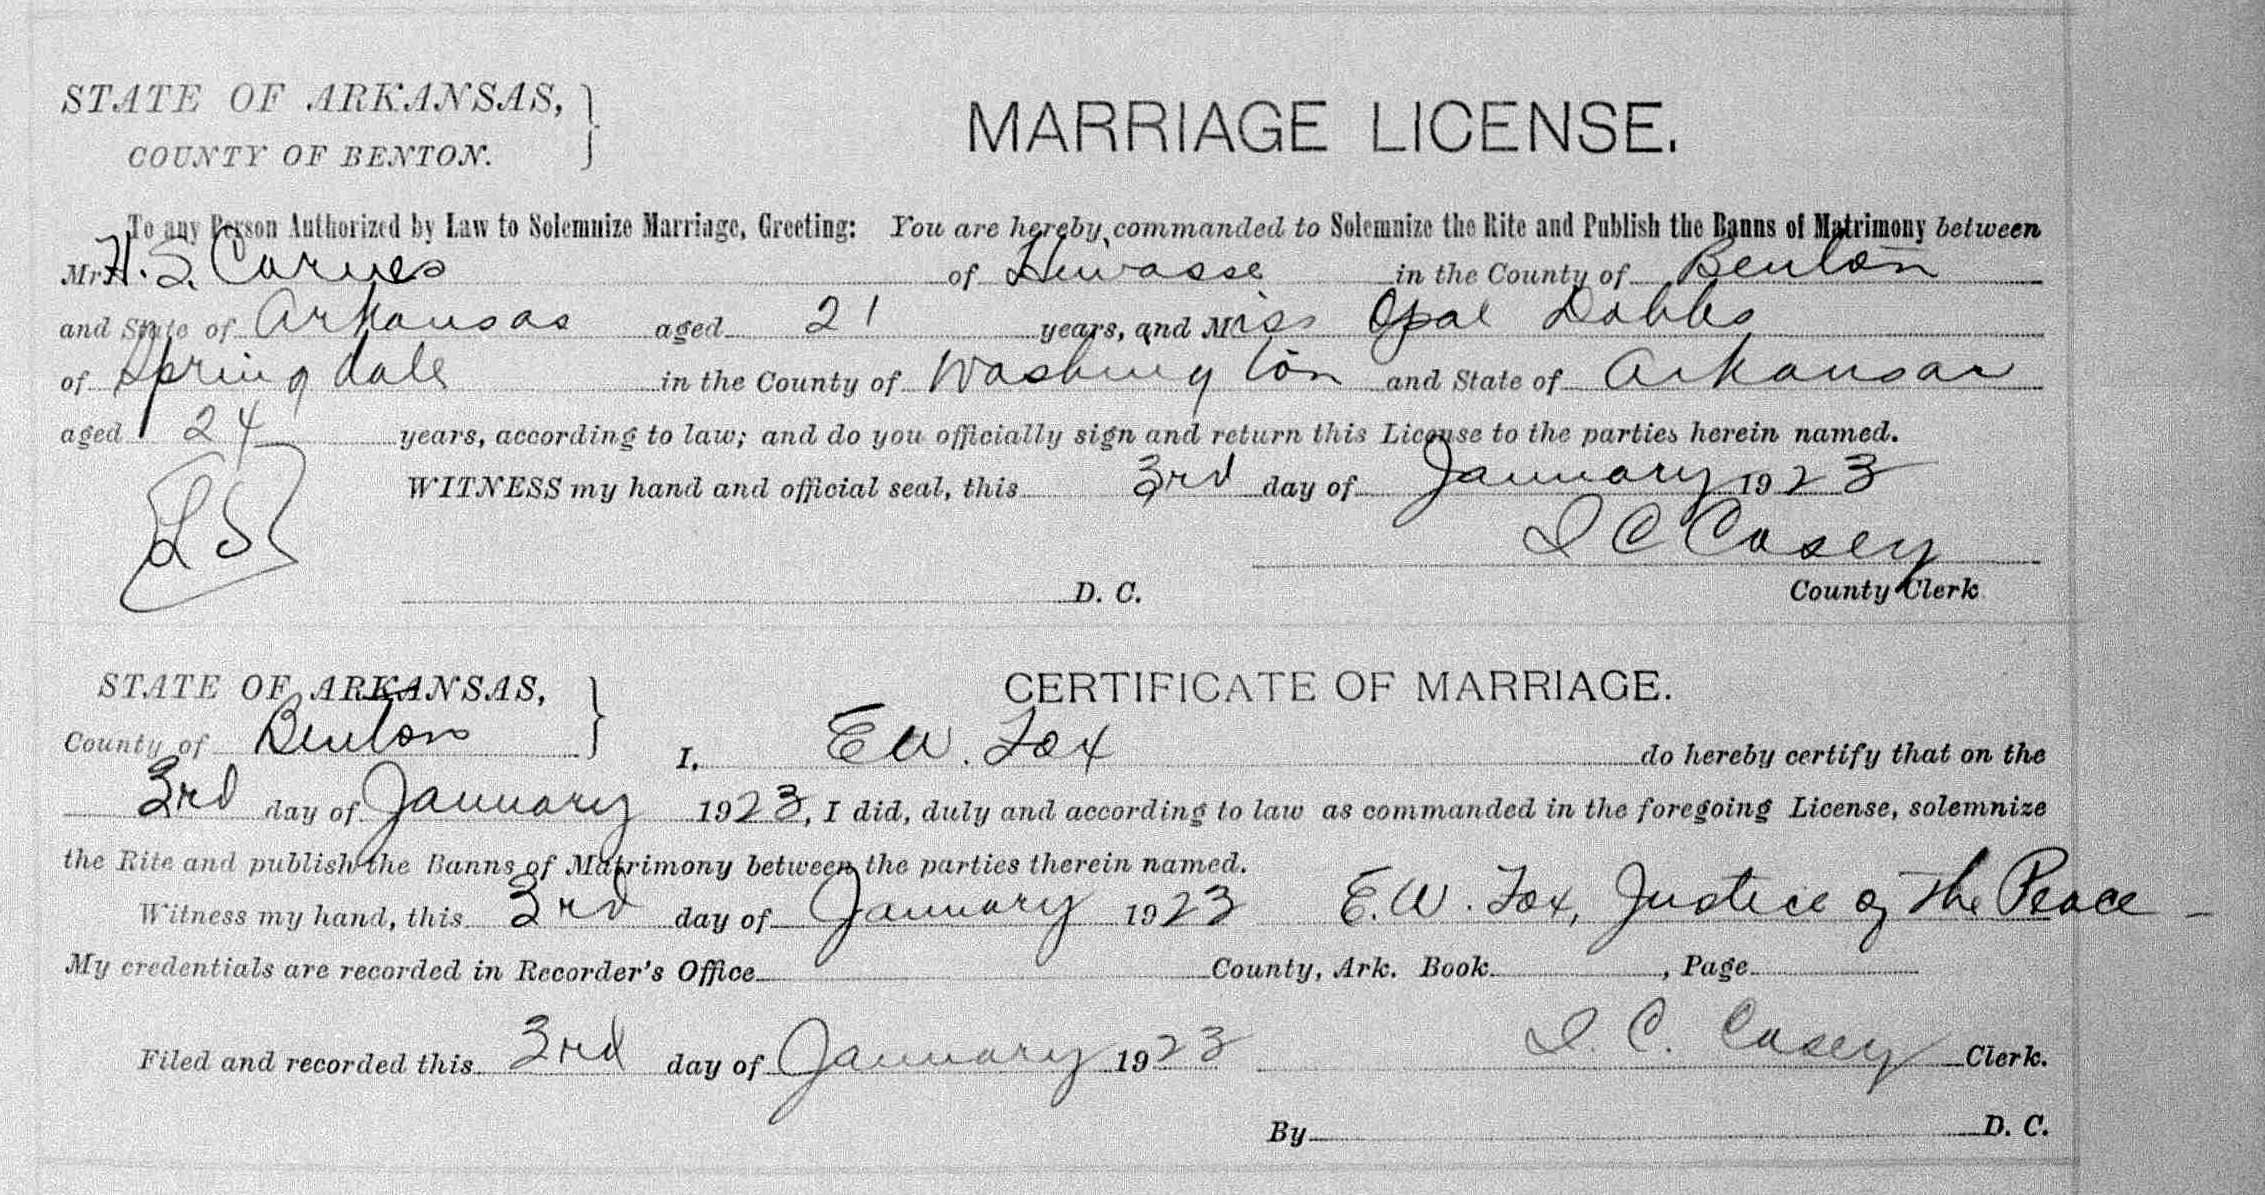 STATE OF ARKANSAS,
COUNTY OF BENTON.
MARRIAGE LICENSE.
To any Person Authorized by Law to Solemnize Marriage, Greeting: You are hereby commanded to Solemnize the Rite and Publish the Banns of Matrimony between
Mr. H. S. Carnes of Hiwasse in the County of Benton
and State of Arkansas aged 21 years, and Miss Opal Dobbs
of Springdale in the County of Washington and State of Arkansas
aged 24 years, according to law; and do you officially sign and return this License to the parties herein named.
WITNESS my hand and official seal, this 3rd day of January 1923
LS
I C Casey
D. C. County Clerk
STATE OF ARKANSAS,
CERTIFICATE OF MARRIAGE.
County of Benton
I, E W. Fox do hereby certify that on the
3rd day of January 1923, I did, duly and according to law as commanded in the foregoing License, solemnize
the Rite and publish the Banns of Matrimony between the parties therein named.
Witness my hand, this 3rd day of January 1923 E. W. Fox, Justice of The Peace -
My credentials are recorded in Recorder's Office County, Ark. Book , Page
Filed and recorded this 3rd day of January 1923 I. C. Casey Clerk.
By D. C.